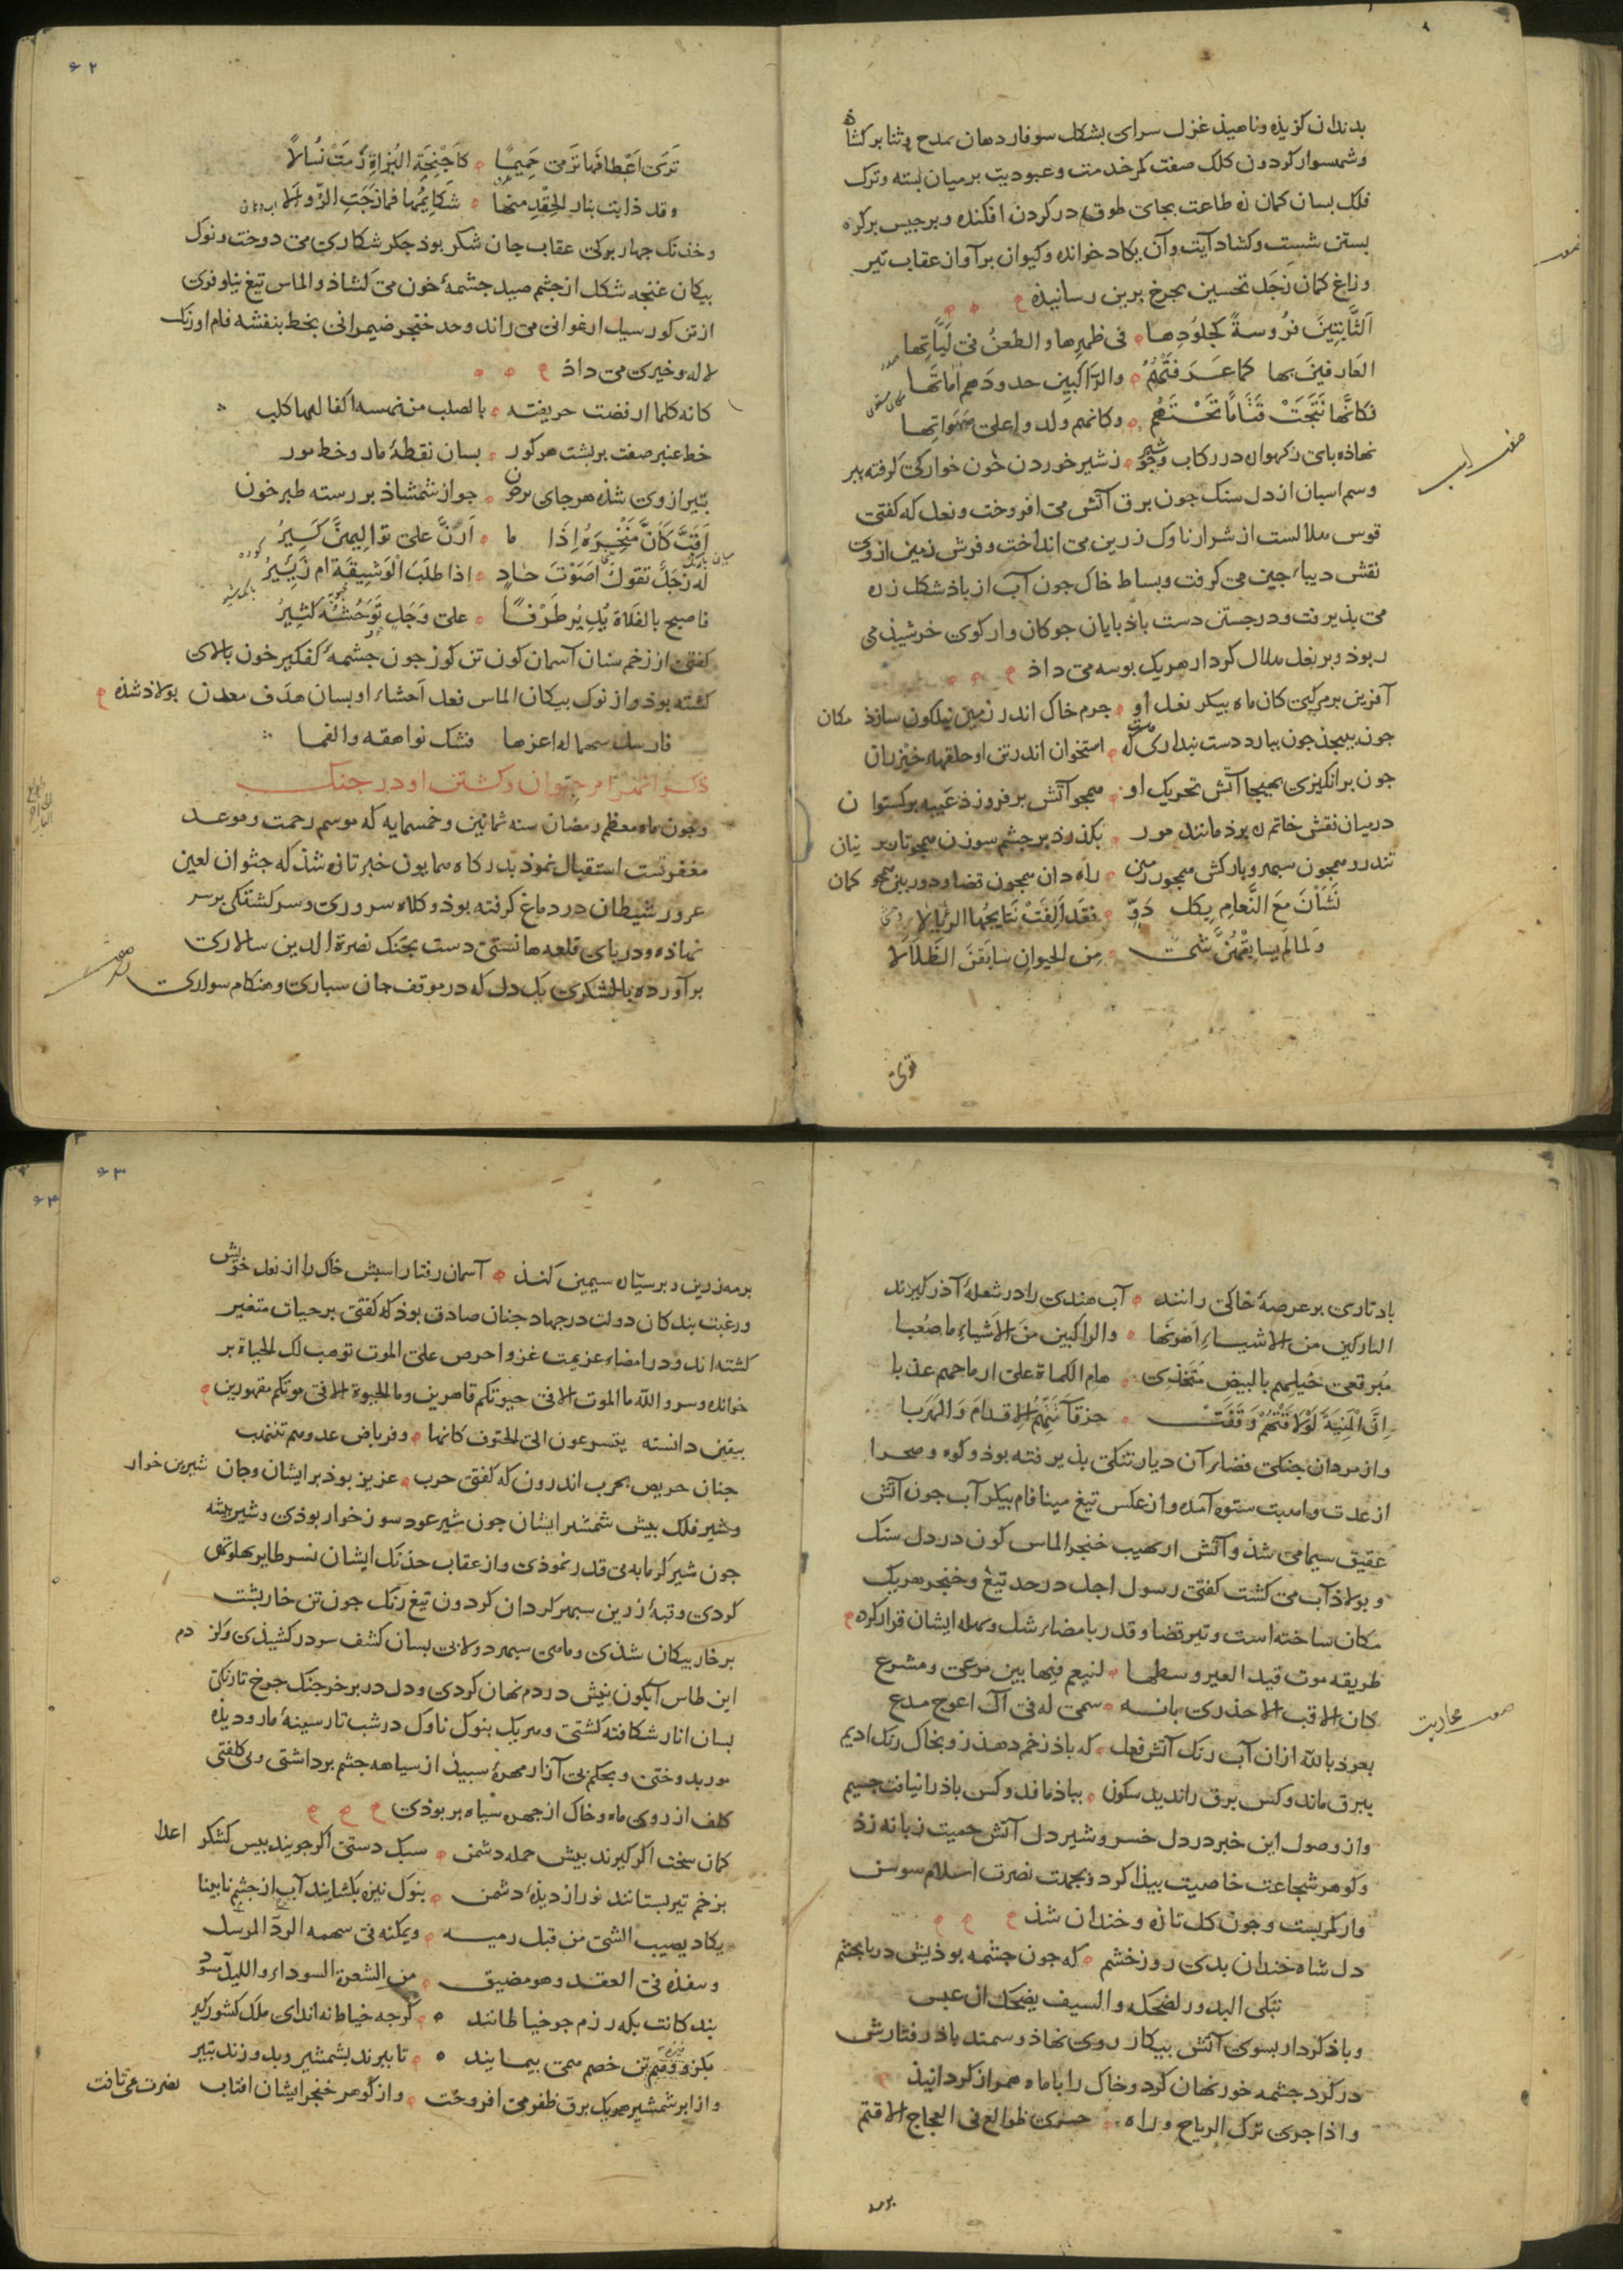 بدندان کزیذه وناهیذ غزل سرای بشکل سوفار دهان بمدح وثنا برکشاذه
وشهسوار کردون کلک صفت کمر خدمت وعبودیت بر میان بسته وترک
فلک بسان کمان زه طاعت بجای طوق در کردن افکنده وبرجیس برکره
بستن شست وکشاد آیت وان یکاد خوانده وکیوان بر آوان عقاب تیر
وزاغ کمان زجل تحسین بجرخ برین رسانیذه
الثابتین فروسة کجلودها في ظهرها والطعن في لباتها
العارفین بها کما عرفتهم والراکبین جدودهم اماتها
فکانها نتجت قیاما تحتهم وکانهم ولدوا علی صهواتها
نهاذه بای زکهواره در رکاب وجو زشیر خوردن خون خوارکی کرفته ببر
صفت اسب
وسم اسبان از دل سنک جون برق آتش می افروخت ونعل که کفتی
قوس هلالست از شرار ناوک زرین می انداخت وفرش زمین از وی
نقش دیباء جین می کرفت وبساط خاک جون آب از باذ شکل زره
می بذیرفت ودر جستن دست باذ بایان جوکان وار کوی خرشیذ می
ربوذ وبر نعل هلال کردار هریک بوسه می داذ
آفرین بر مرکبی کان ماه بیکر نعل او جرم خاک اندر زمین نیلکون سازذ مکان
جون ببیجذ جون بیارد دست بنداری که هست استخوان اندر تن او حلقهاء خیزران
جون برانکیزی بهیجا آتش تحریک او همجو آتش بر فروزد غیبه برکستوان
در میان نقش خاتم ره برذ مانند مور بکذرذ بر جشم سوزن همجو تار بر نیان
تندرو همجون سبهر وبارکش همجون زمین راه دان همجون قضا ودوربین همجو کمان
نشان مع النعام بکل دو فقد الفت نتایجها الرئالا
ولما لم یسابقهن شئ من الحیوان سابقن الظلالا
قوی
۶۲
تری اعطافها ترمی حمیما کاجنحة البزاة رمت نسالا
وقد ذابت بنار الحقد منها شکایمها فمازجت الروالا
وخذنک جهار برکی عقاب جان شکر بوذ جکر شکاری می دوخت ونوک
بیکان غنجه شکل از جشم صید جشمهٔ خون می کشاذ والماس تیغ نیلوفری
از تن کور سیل ارغوانی می راند وحد خنجر ضیمرانی بخط بنفشه فام اورنک
لاله وخیری می داذ
کانه کلما ارفضت حریفته بالصلب من نهسه اکفالها کلب
خط عنبر صفت بر بشت هر کور بسان نقطهٔ مار وخط مور
بتیر از وی شذه هر جای بر خون جو از شمشاذ بر رسته طبر خون
اقب کان منخره اذا ما ارن علی توالیهن کیر
له زجل تقول اصوت حاد اذا طلب الوسیقة ام زمیر
فاصبح بالفلاة یدیر طرفا علی وجل توحشه کثیر
کفتی از زخم سنان آسمان کون تن کوز جون جشمهٔ کفکیر خون بالای
کشته بوذ واز نوک بیکان الماس فعل احشاء او بسان هدف معدن بولاذ شذه
فارسل سهما له اعزها فشک نواهقه والفما
ذکر انهزام جتوان وکشتن او در جنک
وجون ماه معظم رمضان سنه ثمانین وخمسمایه که موسم رحمت وموعد
مغفرتست استقبال نموذ بدرکاه همایون خبر تازه شذ که جتوان لعین
غرور شیطان در دماغ کرفته بوذ وکلاه سروری وسرکشتکی بر سر
نهاذه ودر بای قلعه هانسی دست بجنک نصرة الدین سالاری
برآورده بالشکری یک دل که در موقف جان سباری وهنکام سواری
باذ تازی بر عرصهٔ خاکی رانند آب هندی را در شعلهٔ آذر کیرند
التارکین من الاشیاء اهونها والراکبین من الاشیاء ما صعبا
مبرقعی خیلهم بالبیض متخذی هام الکماة علی ارماحهم عذبا
ان المنیة لو لاقتهم وقفت خرقاء تتهم الاقدام والهربا
واز مردان جنکی فضاء آن دیار تنکی بذیرفته بوذ وکوه وصحرا
از عدت واهبت ستوه آمده واز عکس تیغ مینا فام بیکر آب جون آتش
عقیق سیما می شذ وآتش از نهیب خنجر الماس کون در دل سنک
وبولاذ آب می کشت کفتی رسول اجل در حد تیغ وخنجر هریک
مکان ساخته است وتیر قضا وقدر بامضاء شل وکمله ایشان قرار کرده
طریقه موت قید العیر وسطها لنیعم فیها بین مرعی ومشرع
کان الاقب الاخدری بانسه سمی له فی آل اعوج مدع
بعوذ بالله از ان آب رنک آتش فعل که باذ زخم دهذ زو بخاک رنک ادیم
ببرق ماند وکس برق را ندید سکون بباذ ماند وکس باذ را نیافت جسیم
واز وصول این خبر در دل خسرو شیر دل آتش حمیت زبانه زذ
وکوهر شجاعت خاصیت بیذا کرد وبجهت نصرت اسلام سوسن
وار کمر بست وجون کل تازه وخندان شذ
دل شاه خندان بدی روز خشم که جون جشمه بوذیش دریا بجشم
تبکی البدور لضحکه والسیف یضحک ان عبس
وباذ کردار بسوی آتش بیکار روی نهاذ وسمند باذ رفتارش
در کرد جشمه خور نهان کرد وخاک را با ماه همراز کردانیذ
واذا جری ترک الریاح وراه حسری ظوالع فی العجاج الاقتم
۶۳
۶۴
بر مه زرین وبر سیاره سیمین کنذ آسمان رفتار اسبش خاک را از نعل خویش
ورغبت بندکان دولت در جهاد جنان صادق بوذ که کفتی بر حیات متغیر
کشته اند ودر امضاء عزیمت غزو احرص علی الموت توهب لک الحیاة بر
خوانده وسر والله ما الموت الا فی حیوتکم قاهرین وما الحیوة الا فی موتکم مقهورین
بیقین دانسته یتسرعون الی الحتوف کانها وفر بارض عدوهم تنهب
جنان حریص بحرب اندرون که کفتی حرب عزیز بوذ بر ایشان وجان شیرین خوار
وشیر فلک بیش شمشیر ایشان جون شیر عود سوز خوار بوذی وشیر بیشه
جون شیر کرمابه بی قدر نموذی واز عقاب خدنک ایشان نسر طایر بهلو تهی
کردی وقبهٔ زرین سبهر کردان کردون تیغ رنک جون تن خاربشت
بر خار بیکان شذی وماهی سبهر دولابی بسان کشف سر در کشیذی وکژدم
این طاس آبکون نیش در دم نهان کردی ودل در بر خرجنک جرخ تارنکی
بسان انار شکافته کشتی وهریک بنوک ناوک در شب تار سینهٔ مار ودیذه
مور بدوختی وبحکم بی آزار مهرهٔ سبیذ از سیاهه جشم برداشتی وبی کلفتی
کلف از روی ماه وخاک از جهره سیاه بر بوذی
کمان سخت اکر کیرند بیش حمله دشمن سبک دستی اکر جویند بیس لشکر اعدا
بزخم تیر بستانند نور از دیذهٔ دشمن بنوک نیزه بکشایند آب از جشم نابینا
یکاد یصیب الشئ من قبل رمیه ویمکنه فی سهمه الرد المرسل
وینفذه فی العقد وهو مضیق من الشعرة السوداء واللیل مسود
بند کانت بکه رزم جو خیاطانند کرجه خیاط نه اند ای ملک کشورکیر
بکز نیزه تن خصم همی بیمایند تا ببرند بشمشیر وبدوزند بتیر
واز ابر شمشیر هریک برق ظفر می افروخت واز کوهر خنجر ایشان افتاب نصرت می تافت